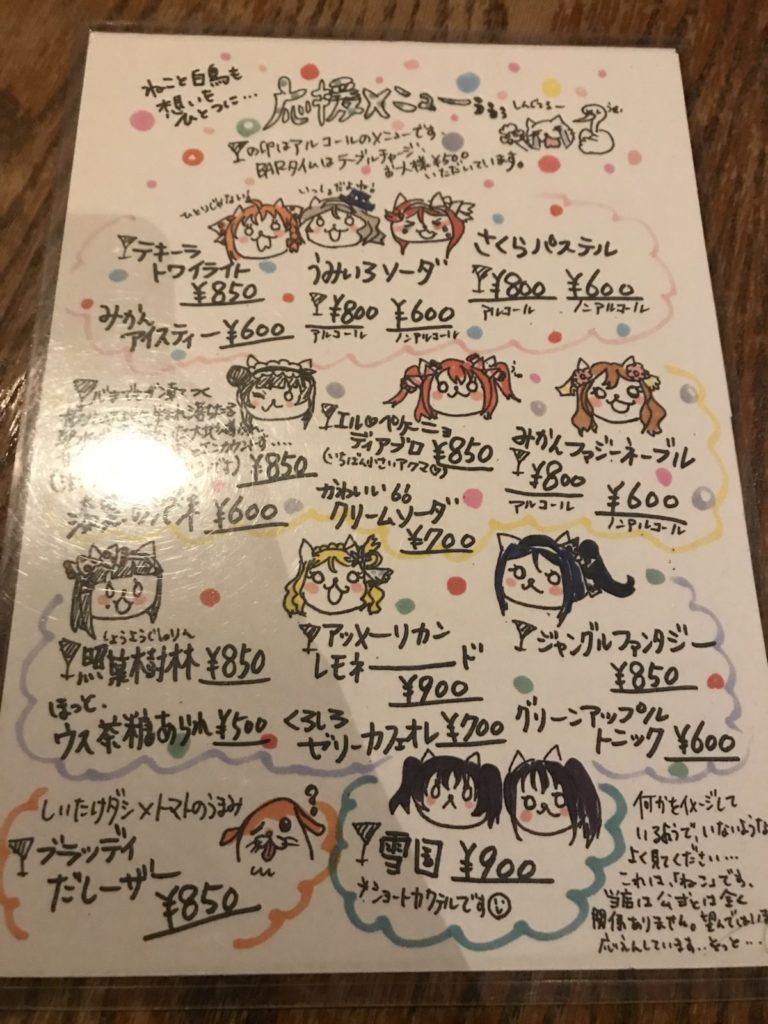 ねこと白鳥も
想いを
ひとつに…
応援メニューぅぅぅ
しんじるー
の印はアルコールのメニューです
BARタイムはテーブルチャージ、
お一人様¥500
いただいています。
ひとりじゃない!
いっしょだよ!
テキーラ
トワイライト
¥850
みかん
アイスティー ¥600
うみいろソーダ
¥800 ¥600
アルコール ノンアルコール
さくらパステル
¥800 ¥600
アルコール ノンアルコール
¥850
漆黒の
¥600
エル♡ペケーニョ
ディアブロ ¥850
(いちばん小さいアクマ♡)
かわいい66
クリームソーダ
¥700
みかんファジーネーブル
¥800 ¥600
アルコール ノンアルコール
しょうようじゅりん
照葉樹林 ¥850
ほっと、
ウス茶糖あられ ¥500
アッメーリカン
レモネ―――ド
¥900
くろしろ
ゼリーカフェオレ ¥700
ジャングルファンタジー
¥850
グリーンアップル
トニック ¥600
しいたけダシ×トマトのうまみ
?
ブラッディ
だしーザレ
¥850
雪国 ¥900
*ショートカクテルです
何かをイメージして
いるようで、いないような
よく見てください…
これは、「ねこ」です。
当店は公式とは全く
関係ありません。望んではいま
応えんしています…そっと…